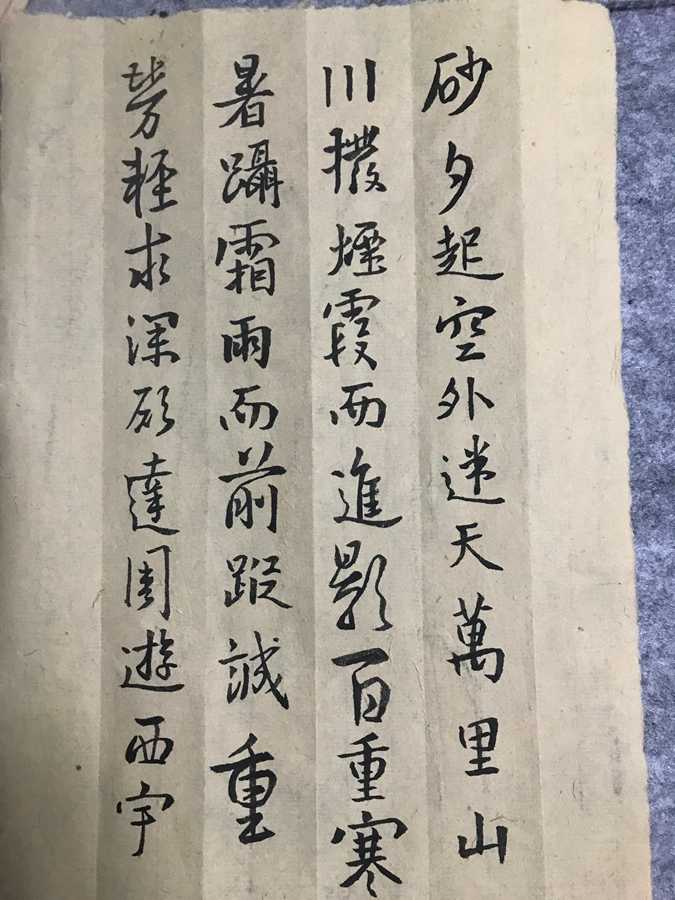 砂夕起空外迷天萬里山
川撥煙霞而進影百重寒
暑躡霜雨而前蹤誠重
勞輕求深願達周遊西宇